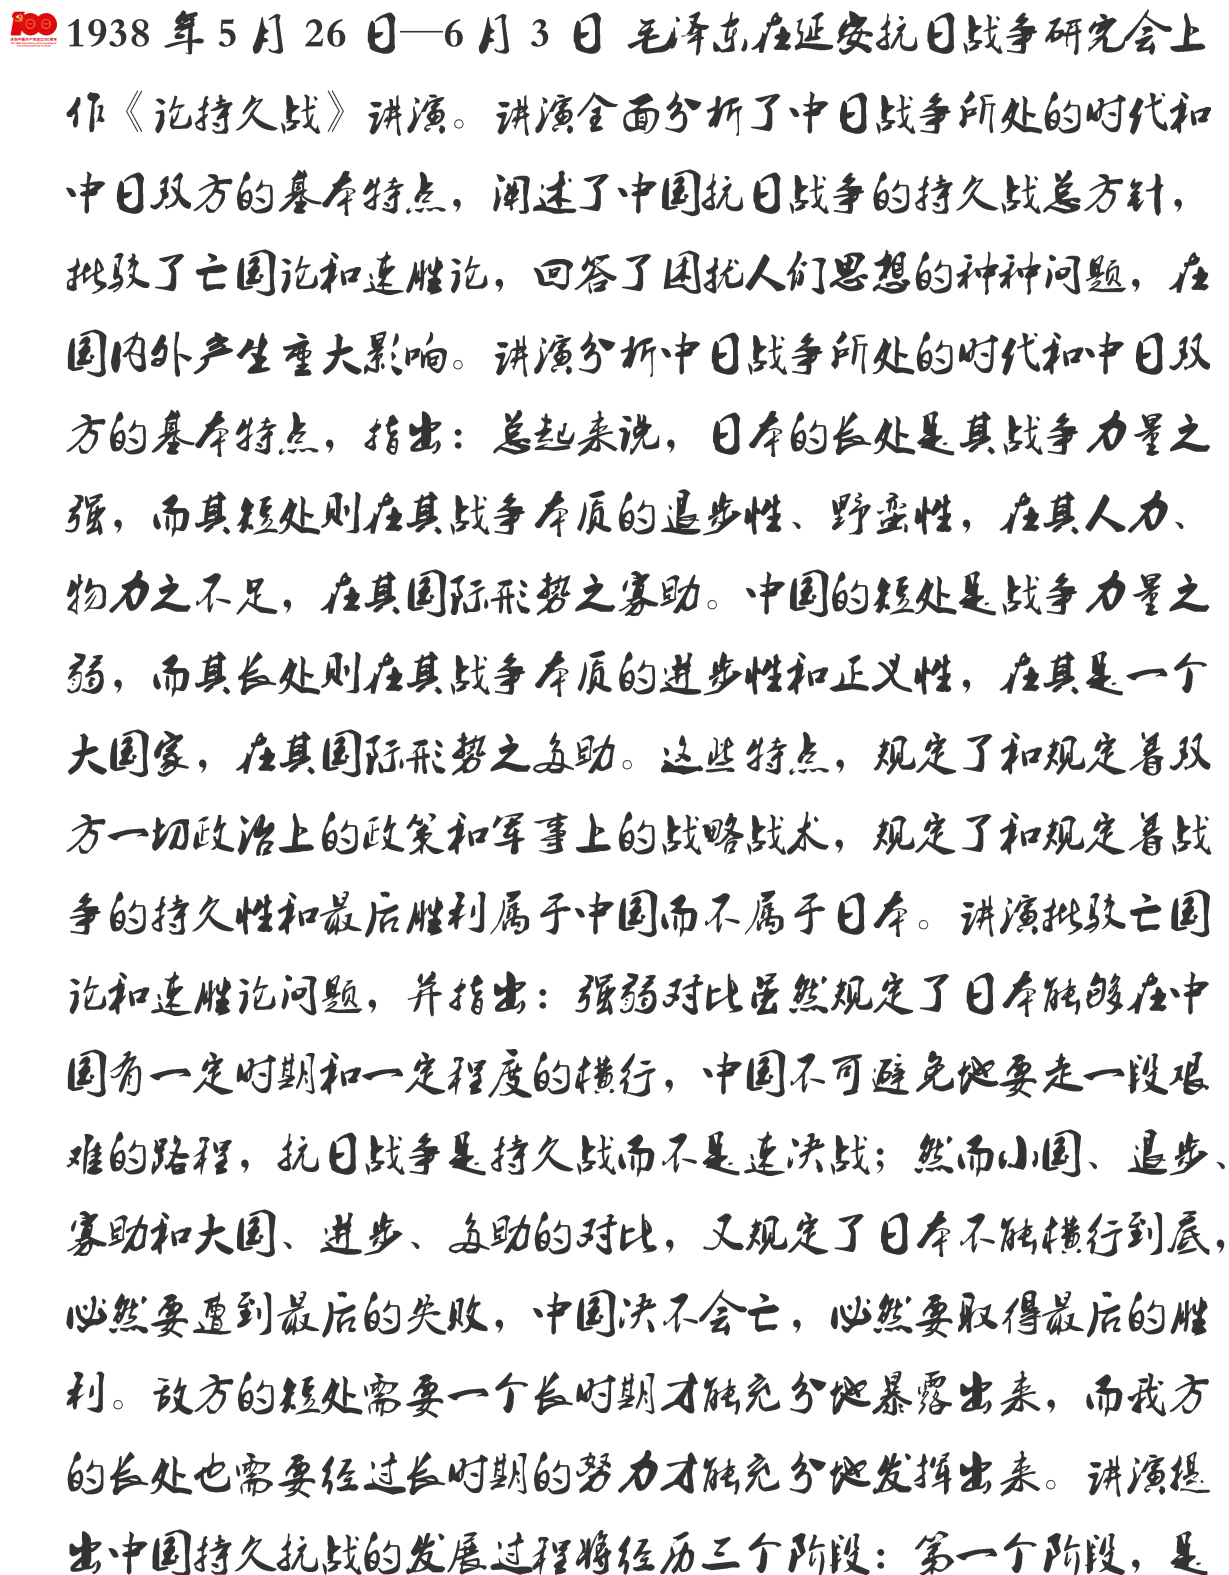 1938年5月26日—6月3日 毛泽东在延安抗日战争研究会上
作《论持久战》讲演。讲演全面分析了中日战争所处的时代和
中日双方的基本特点，阐述了中国抗日战争的持久战总方针，
批驳了亡国论和速胜论，回答了困扰人们思想的种种问题，在
国内外产生重大影响。讲演分析中日战争所处的时代和中日双
方的基本特点，指出：总起来说，日本的长处是其战争力量之
强，而其短处则在其战争本质的退步性、野蛮性，在其人力、
物力之不足，在其国际形势之寡助。中国的短处是战争力量之
弱，而其长处则在其战争本质的进步性和正义性，在其是一个
大国家，在其国际形势之多助。这些特点，规定了和规定着双
方一切政治上的政策和军事上的战略战术，规定了和规定着战
争的持久性和最后胜利属于中国而不属于日本。讲演批驳亡国
论和速胜论问题，并指出：强弱对比虽然规定了日本能够在中
国有一定时期和一定程度的横行，中国不可避免地要走一段艰
难的路程，抗日战争是持久战而不是速决战；然而小国、退步、
寡助和大国、进步、多助的对比，又规定了日本不能横行到底，
必然要遭到最后的失败，中国决不会亡，必然要取得最后的胜
利。敌方的短处需要一个长时期才能充分地暴露出来，而我方
的长处也需要经过长时期的努力才能充分地发挥出来。讲演提
出中国持久抗战的发展过程将经历三个阶段：第一个阶段，是